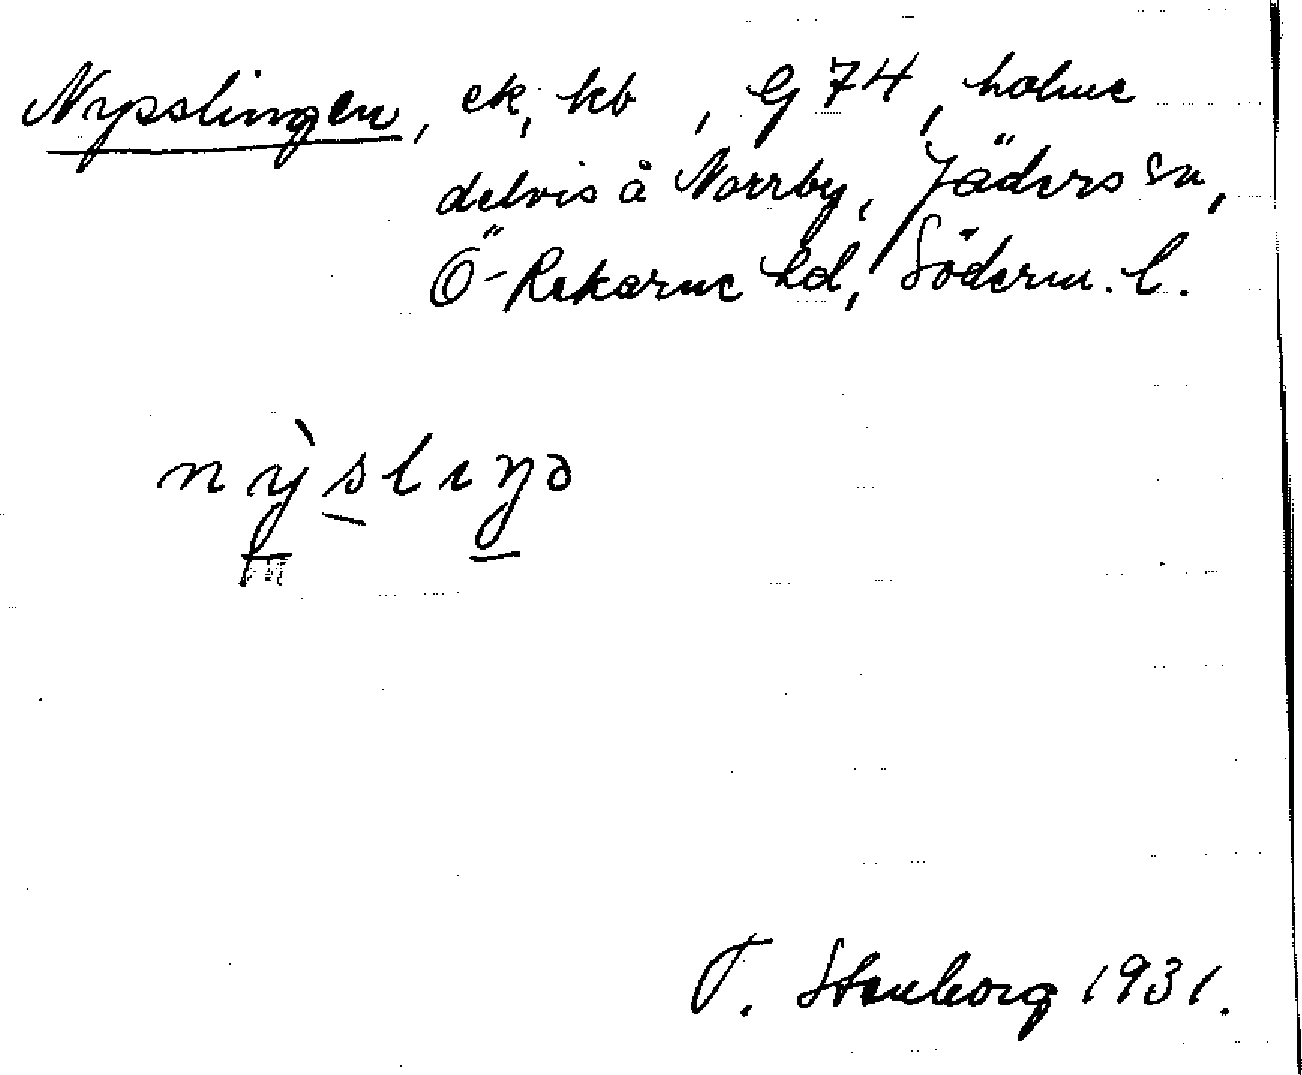 Nysslingen, ek, kb , G 74, holme
delvis å Norrby, Jäders sn,
Ö-Rekarne hd, Söderm. l.
nỳslıŋə
T. Stenborg 1931.